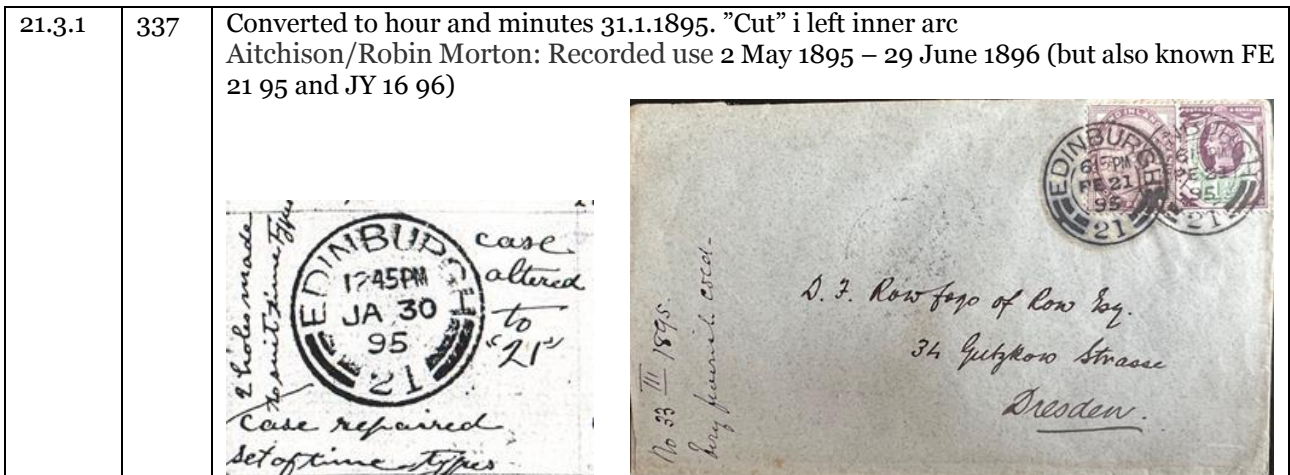 21.3.1
337
Converted to hour and minutes 31.1.1895. ”Cut” i left inner arc
Aitchison/Robin Morton: Recorded use 2 May 1895 – 29 June 1896 (but also known FE
21 95 and JY 16 96)
2 holes made
to suit time types
EDINBURGH
1245PM
JA 30
95
21
case
altered
to
"21"
case repaired
set of time types
EDINBURGH
615PM
FE 21
95
21
FE 21
95
21
No 33 III 1895
D. F. Row fogo of Row Esq.
34 Gutzkow Strasse
Dresden.